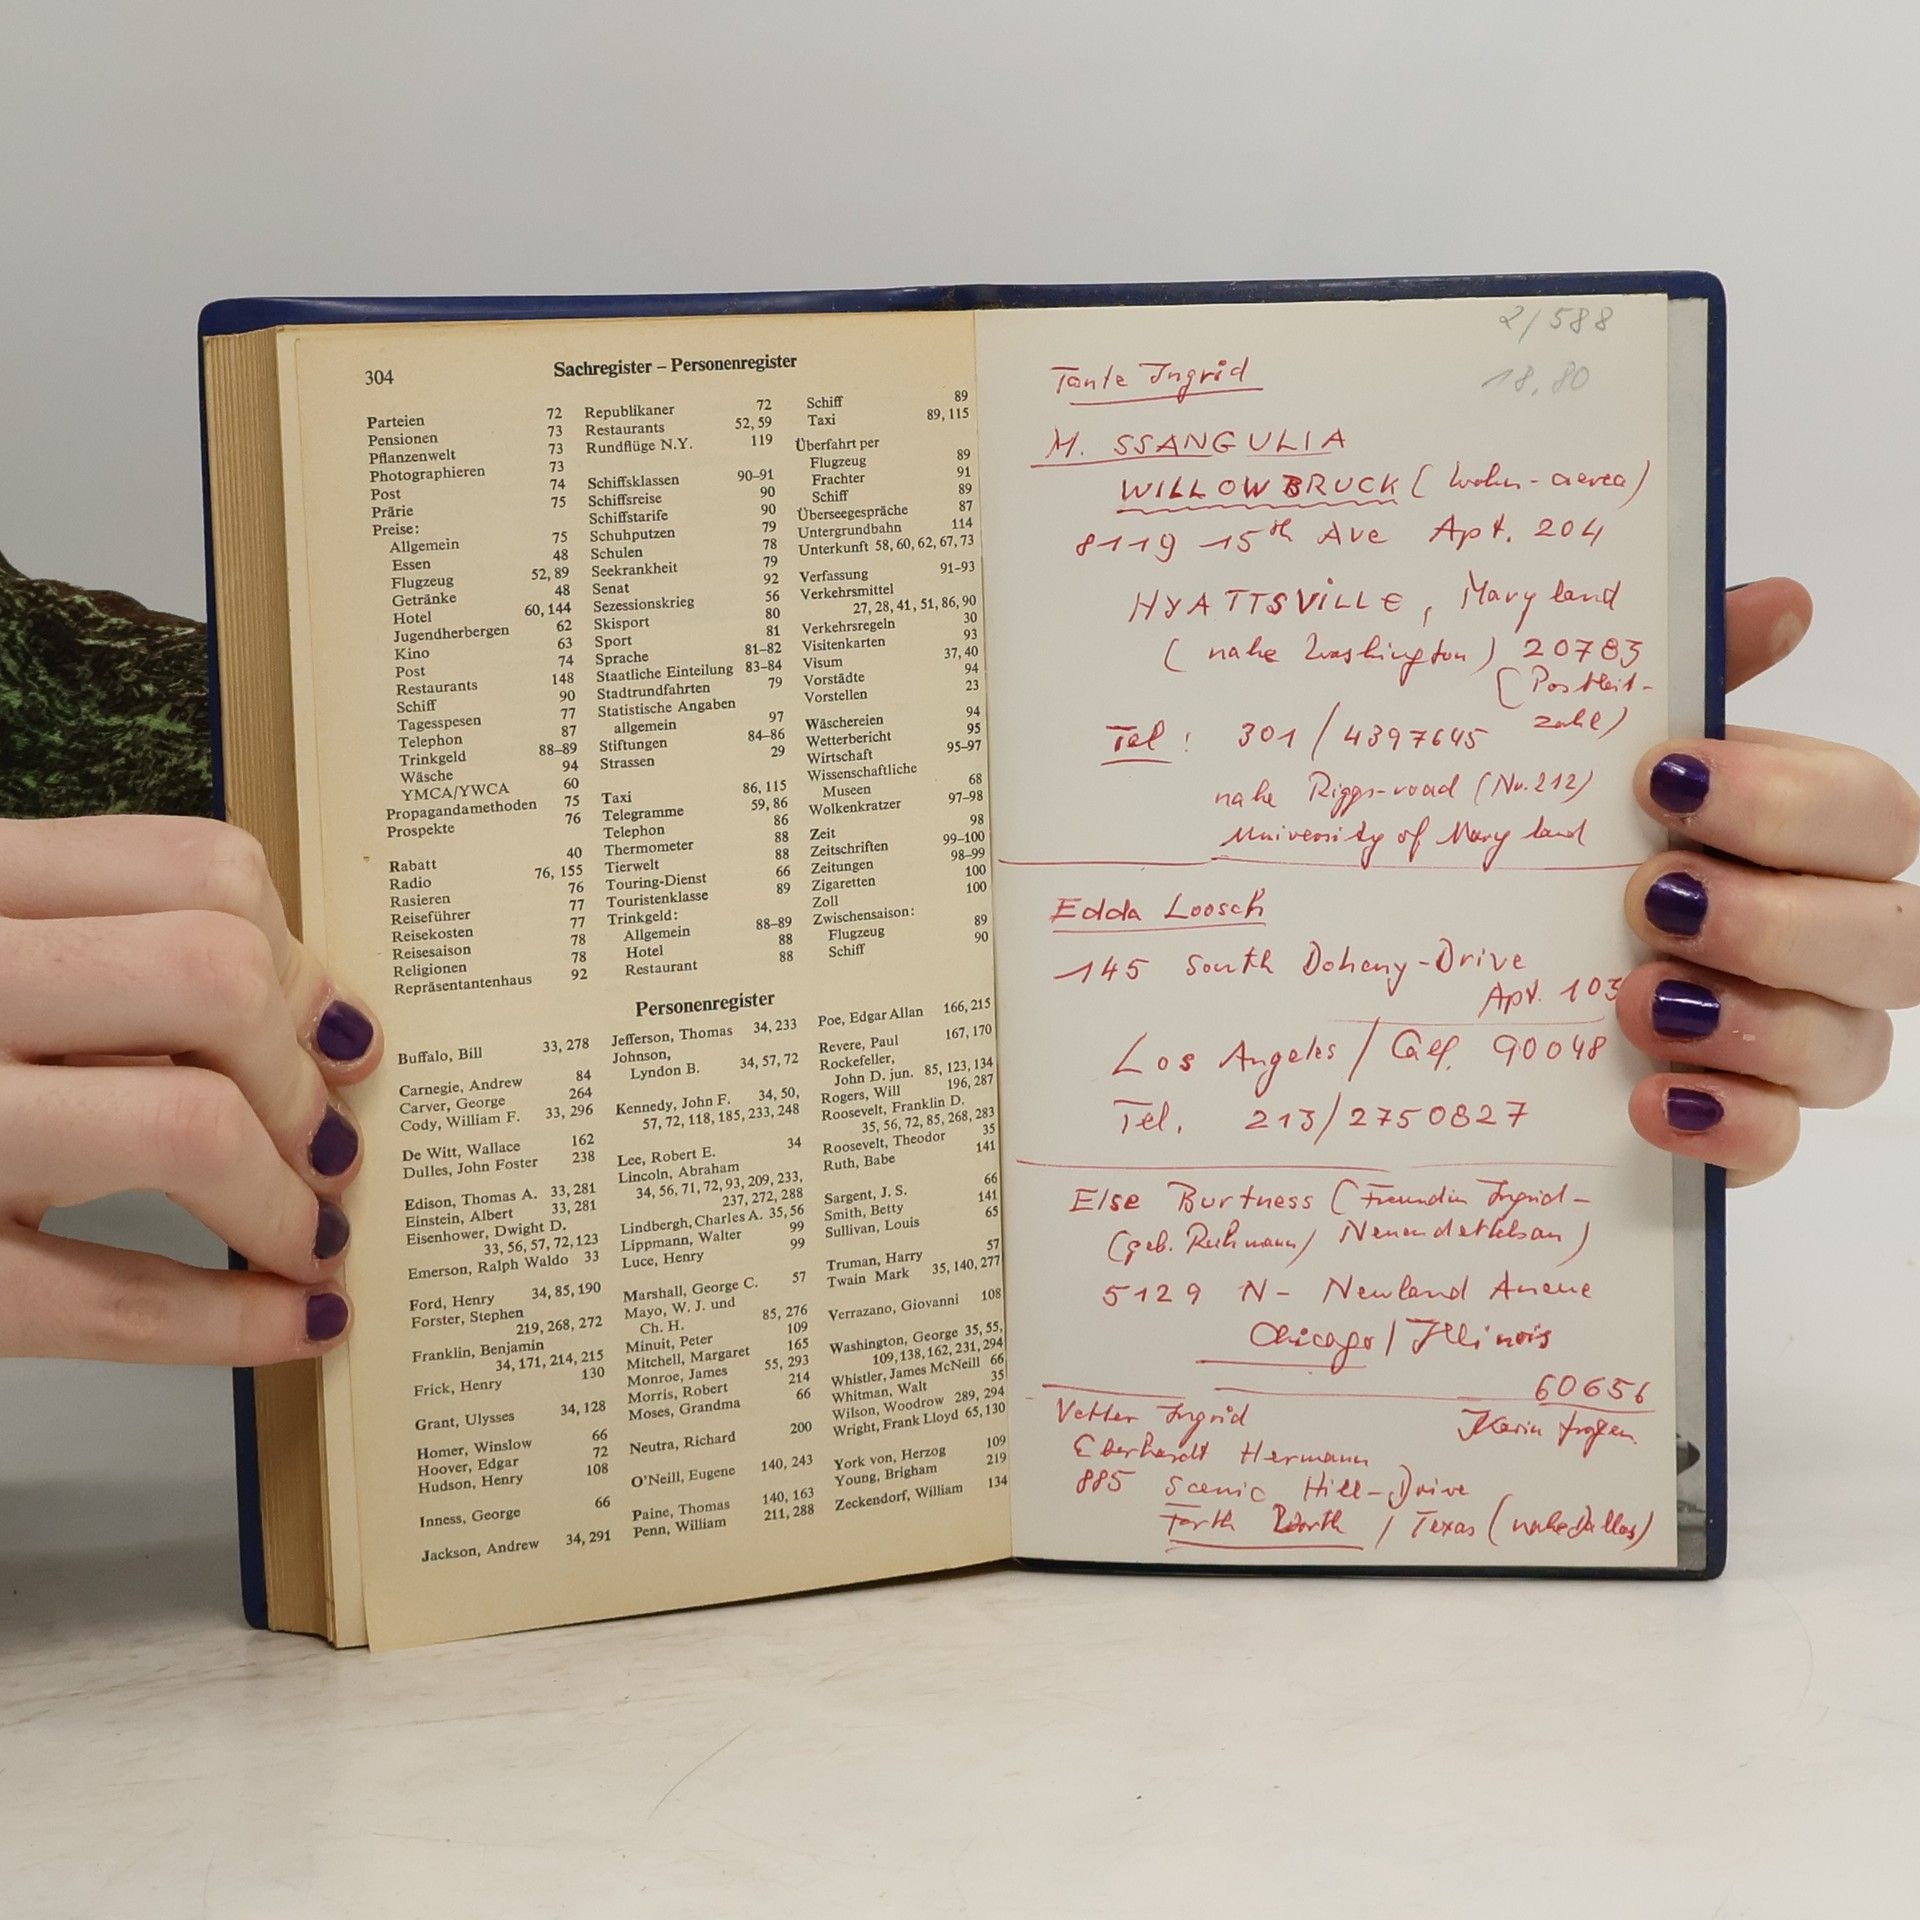 304
Sachregister – Personenregister
Parteien 72
Pensionen 73
Pflanzenwelt 73
Photographieren 73
Post 74
Prärie 75
Preise:
Allgemein 75
Essen 48
Flugzeug 52, 89
Getränke 48
Hotel 60, 144
Jugendherbergen 62
Kino 63
Post 74
Restaurants 148
Schiff 90
Tagesspesen 77
Telephon 87
Trinkgeld 88–89
Wäsche 94
YMCA/YWCA 60
Propagandamethoden 75
Prospekte 76
Rabatt 40
Radio 76, 155
Rasieren 76
Reiseführer 77
Reisekosten 77
Reisesaison 78
Religionen 78
Repräsentantenhaus 92
Republikaner 72
Restaurants 52, 59
Rundflüge N.Y. 119
Schiffsklassen 90–91
Schiffsreise 90
Schiffstarife 90
Schuhputzen 79
Schulen 78
Seekrankheit 79
Senat 92
Sezessionskrieg 56
Skisport 80
Sport 81
Sprache 81–82
Staatliche Einteilung 83–84
Stadtrundfahrten 79
Statistische Angaben
allgemein 97
Stiftungen 84–86
Strassen 29
Taxi 86, 115
Telegramme 59, 86
Telephon 86
Thermometer 88
Tierwelt 88
Touring-Dienst 66
Touristenklasse 89
Trinkgeld:
Allgemein 88–89
Hotel 88
Restaurant 88
Schiff 89
Taxi 89, 115
Überfahrt per
Flugzeug 89
Frachter 91
Schiff 89
Überseegespräche 87
Untergrundbahn 114
Unterkunft 58, 60, 62, 67, 73
Verfassung 91–93
Verkehrsmittel
27, 28, 41, 51, 86, 90
Verkehrsregeln 30
Visitenkarten 93
Visum 37, 40
Vorstädte 94
Vorstellen 23
Wäschereien 94
Wetterbericht 95
Wirtschaft 95–97
Wissenschaftliche
Museen 68
Wolkenkratzer 97–98
Zeit 98
Zeitschriften 99–100
Zeitungen 98–99
Zigaretten 100
Zoll 100
Zwischensaison:
Flugzeug 89
Schiff 90
Personenregister
Buffalo, Bill 33, 278
Carnegie, Andrew 84
Carver, George 264
Cody, William F. 33, 296
De Witt, Wallace 162
Dulles, John Foster 238
Edison, Thomas A. 33, 281
Einstein, Albert 33, 281
Eisenhower, Dwight D.
33, 56, 57, 72, 123
Emerson, Ralph Waldo 33
Ford, Henry 34, 85, 190
Forster, Stephen
219, 268, 272
Franklin, Benjamin
34, 171, 214, 215
Frick, Henry 130
Grant, Ulysses 34, 128
Homer, Winslow 66
Hoover, Edgar 72
Hudson, Henry 108
Inness, George 66
Jackson, Andrew 34, 291
Jefferson, Thomas 34, 233
Johnson,
Lyndon B. 34, 57, 72
Kennedy, John F. 34, 50,
57, 72, 118, 185, 233, 248
Lee, Robert E. 34
Lincoln, Abraham
34, 56, 71, 72, 93, 209, 233,
237, 272, 288
Lindbergh, Charles A. 35, 56
Lippmann, Walter 99
Luce, Henry 99
Marshall, George C. 57
Mayo, W. J. und
Ch. H. 85, 276
Minuit, Peter 109
Mitchell, Margaret 165
Monroe, James 55, 293
Morris, Robert 214
Moses, Grandma 66
Neutra, Richard 200
O'Neill, Eugene 140, 243
Paine, Thomas 140, 163
Penn, William 211, 288
Poe, Edgar Allan 166, 215
Revere, Paul 167, 170
Rockefeller,
John D. jun. 85, 123, 134
Rogers, Will 196, 287
Roosevelt, Franklin D.
35, 56, 72, 85, 268, 283
Roosevelt, Theodor 35
Ruth, Babe 141
Sargent, J. S. 66
Smith, Betty 141
Sullivan, Louis 65
Truman, Harry 57
Twain Mark 35, 140, 277
Verrazano, Giovanni 108
Washington, George 35, 55,
109, 138, 162, 231, 294
Whistler, James McNeill 66
Whitman, Walt 35
Wilson, Woodrow 289, 294
Wright, Frank Lloyd 65, 130
York von, Herzog 109
Young, Brigham 219
Zeckendorf, William 134
2/588
18,80
Tante Ingrid
M. SSANGULIA
WILLOWBRUCK (Wohn-aerea)
8119 15th Ave Apt. 204
HYATTSVILLE, Maryland
(nahe Washington) 20783
(Postleit-
zahl)
Tel: 301/4397645
nahe Riggs-road (No. 212)
University of Maryland
Edda Loosch
145 South Doheny-Drive
Apt. 103
Los Angeles / Calf. 90048
Tel. 213/2750827
Else Burtness (Freundin Ingrid-
(geb. Neuendettelsau)
5129 N- Newland Aneue
Chicago / Illinois
60656
Karin fragen.
Vetter Ingrid
Eberhardt Hermann
885 Scenic Hill-Drive
Forth Worth / Texas (nahe Dallas)